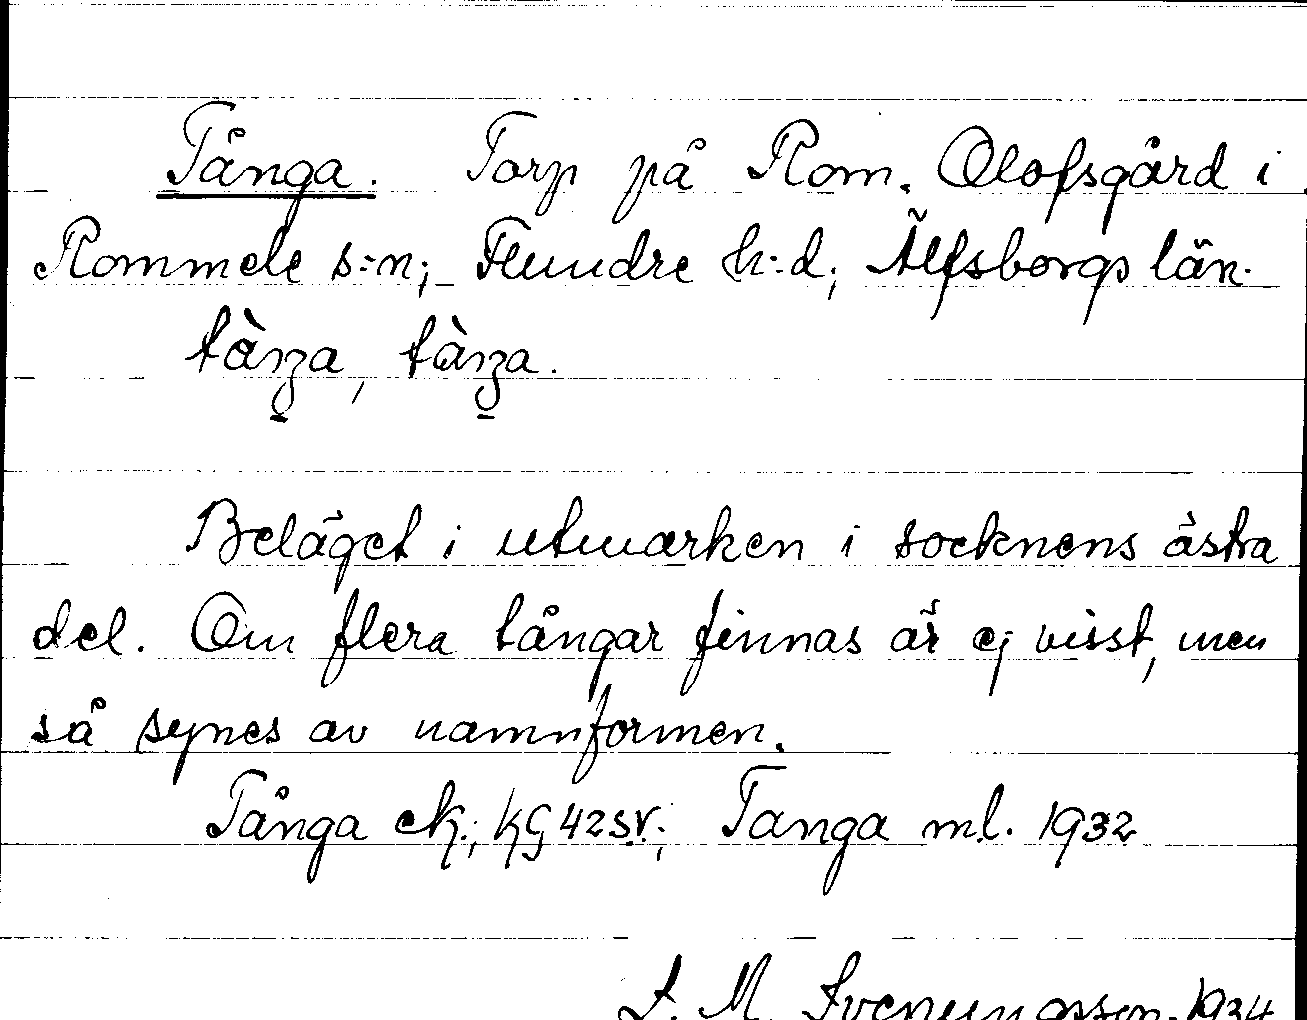 Tånga. Torp på Rom. Olofsgård i
Rommele s:n; Flundre h:d; Älfsborgs län.
Beläget i utmarken i socknens östra
del. Om flera tångar finnas är ej visst, men
så synes av namnformen.
Tånga ek.; KG 42 SV.; Tanga ml. 1932
1934